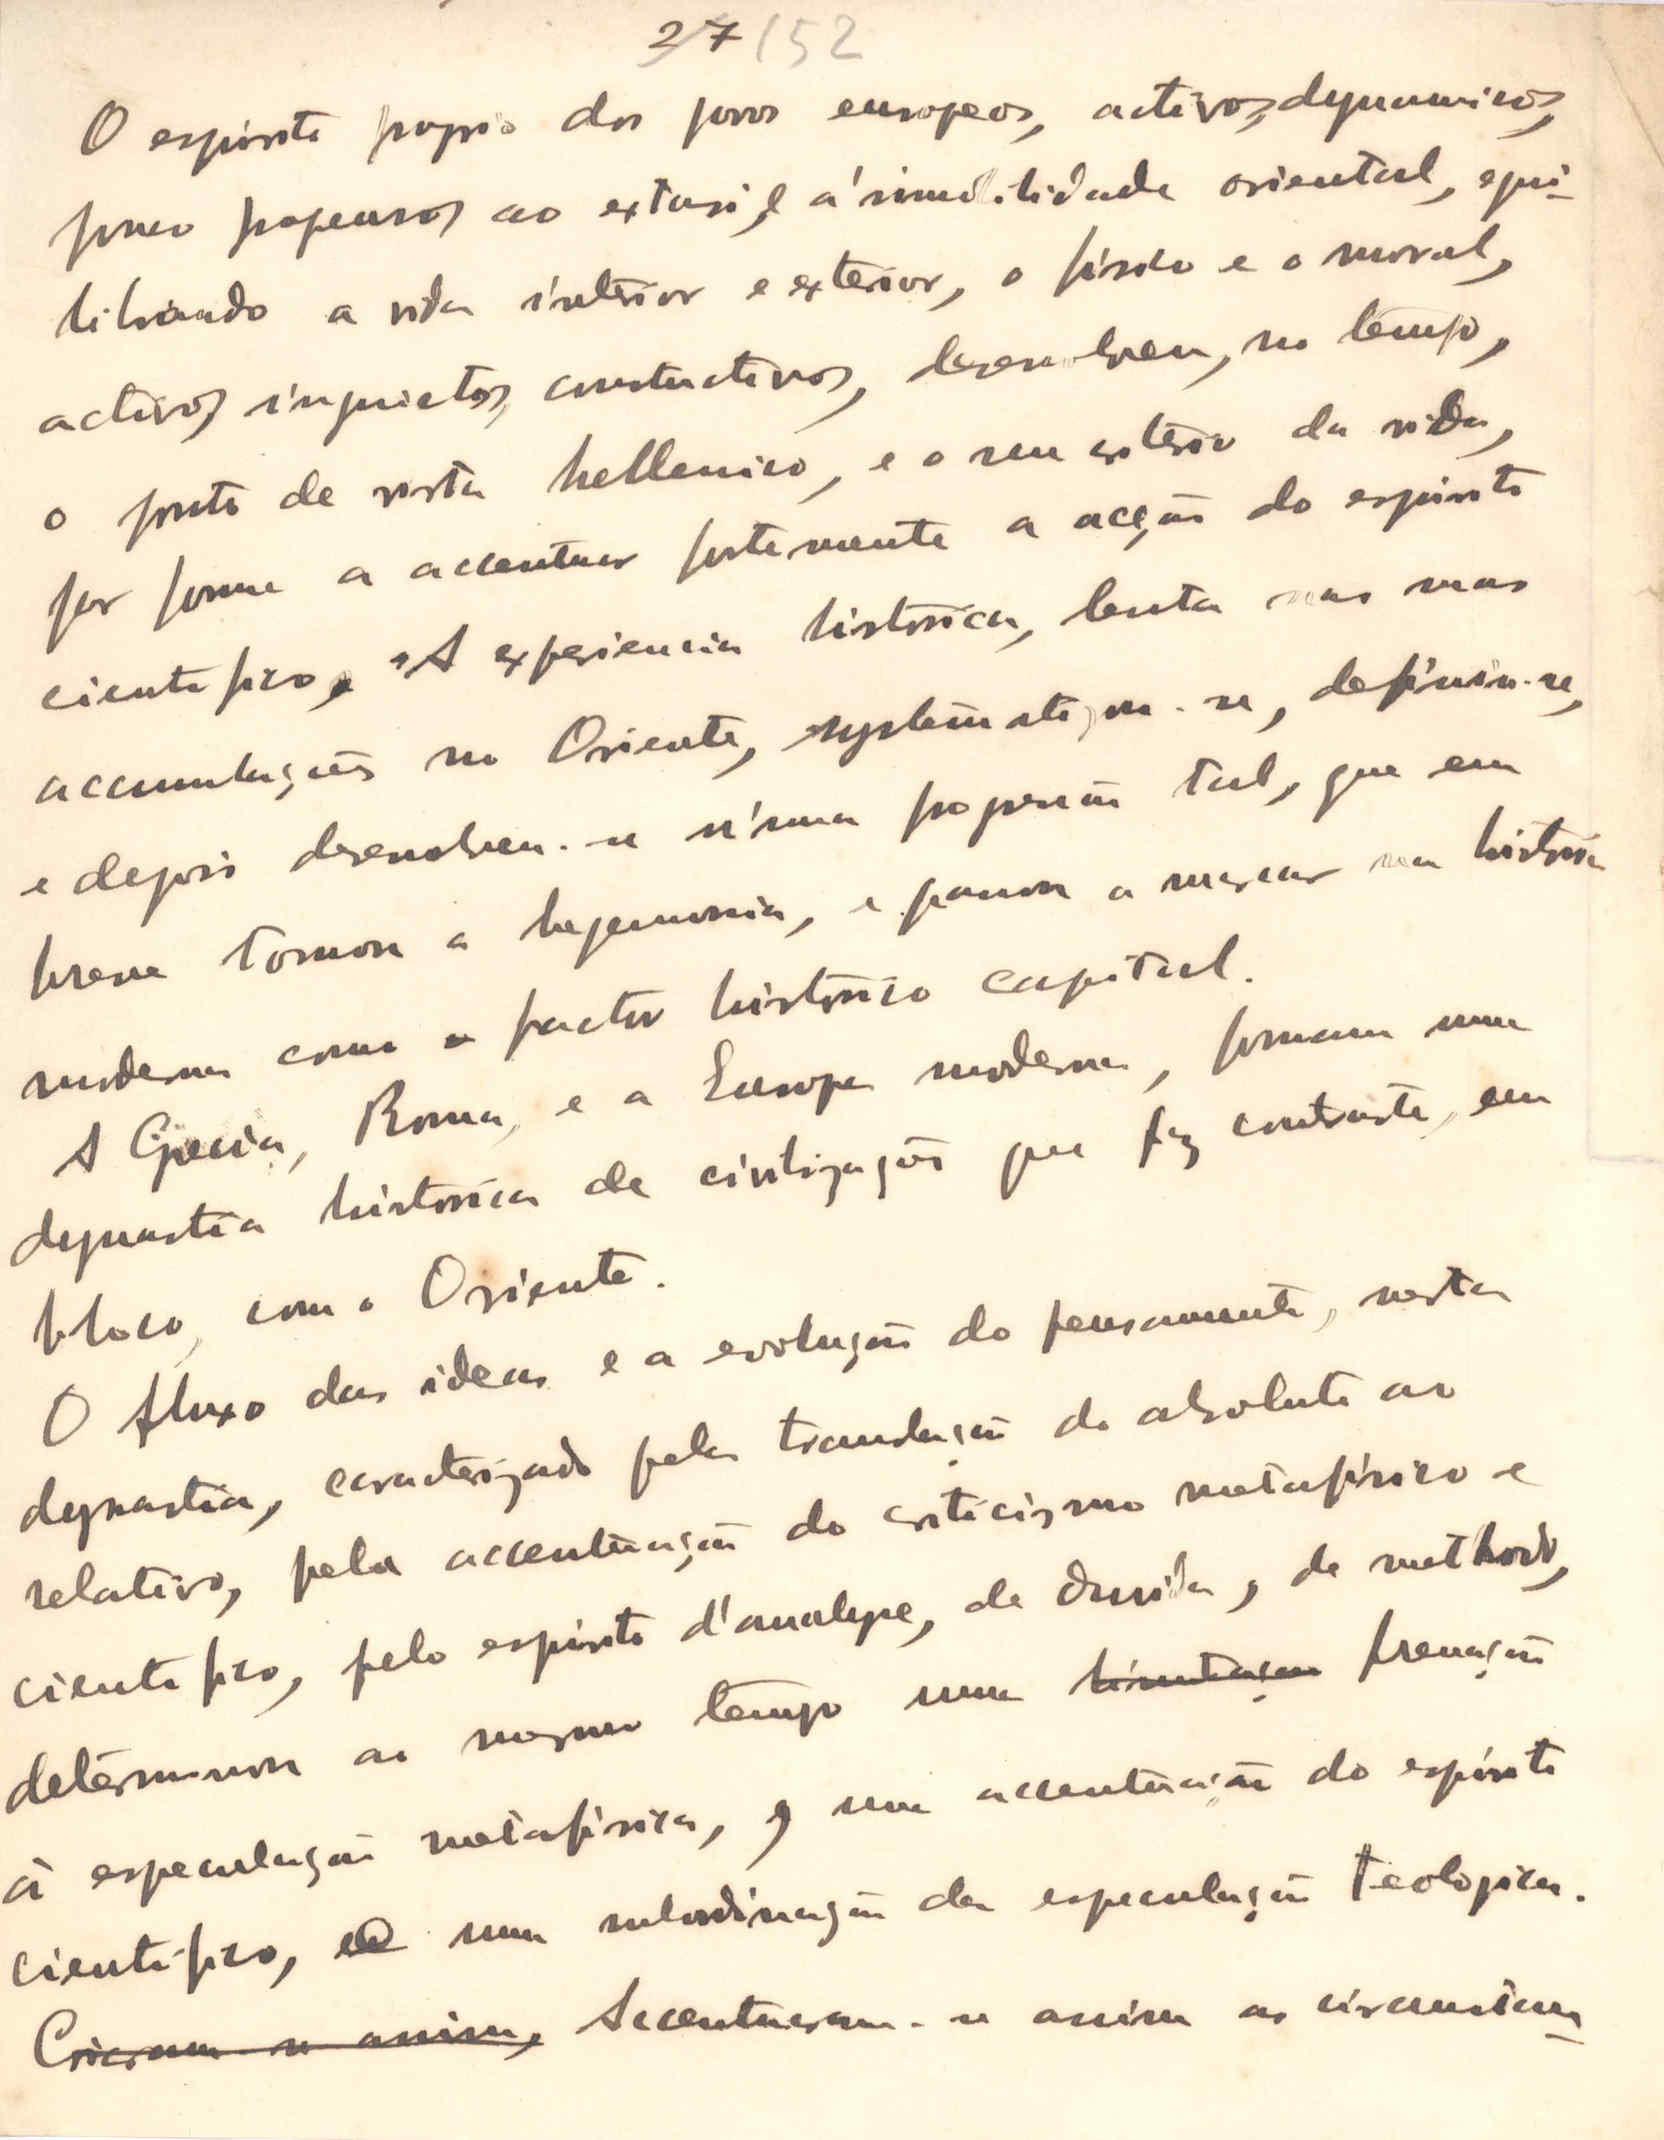 27/52
O espirito proprio dos povos europeos, activos, dynamicos,
pouco propensos ao extasi, e á immobilidade oriental, equi-
librando a vida interior e exterior, o fisico e o moral,
activos, inquietos, constructivos, desenvolveu, no tempo,
o ponto de vista hellenico, e o seu criterio da vida,
por forma a accentuar fortemente a acção do espirito
cientifico. A experiencia historica, lenta nas suas
accumulações no Oriente, systematizou-se, definiu-se,
e depois desenvolveu-se n'uma progressão tal, que em
breve tomou a hegemonia, e passou a marcar na historia
moderna como o factor historico capital.
A Grecia, Roma, e a Europa moderna, formam uma
dynastia historica de civilização que fez contraste, em
bloco, com o Oriente.
O fluxo das ideas e a evolução do pensamento, nesta
dynastia, caracterizado pela translação do absoluto ao
relativo, pela accentuação do criticismo metafisico e
cientifico, pelo espirito d'analyse, de duvida, de methodo,
determinou ao mesmo tempo uma limitação frenação
á especulação metafisica, e uma accentuação do espirito
cientifico, e uma subordinação da especulação teologica.
Crioram-se assim, Accentuaram-se assim as circumstan-